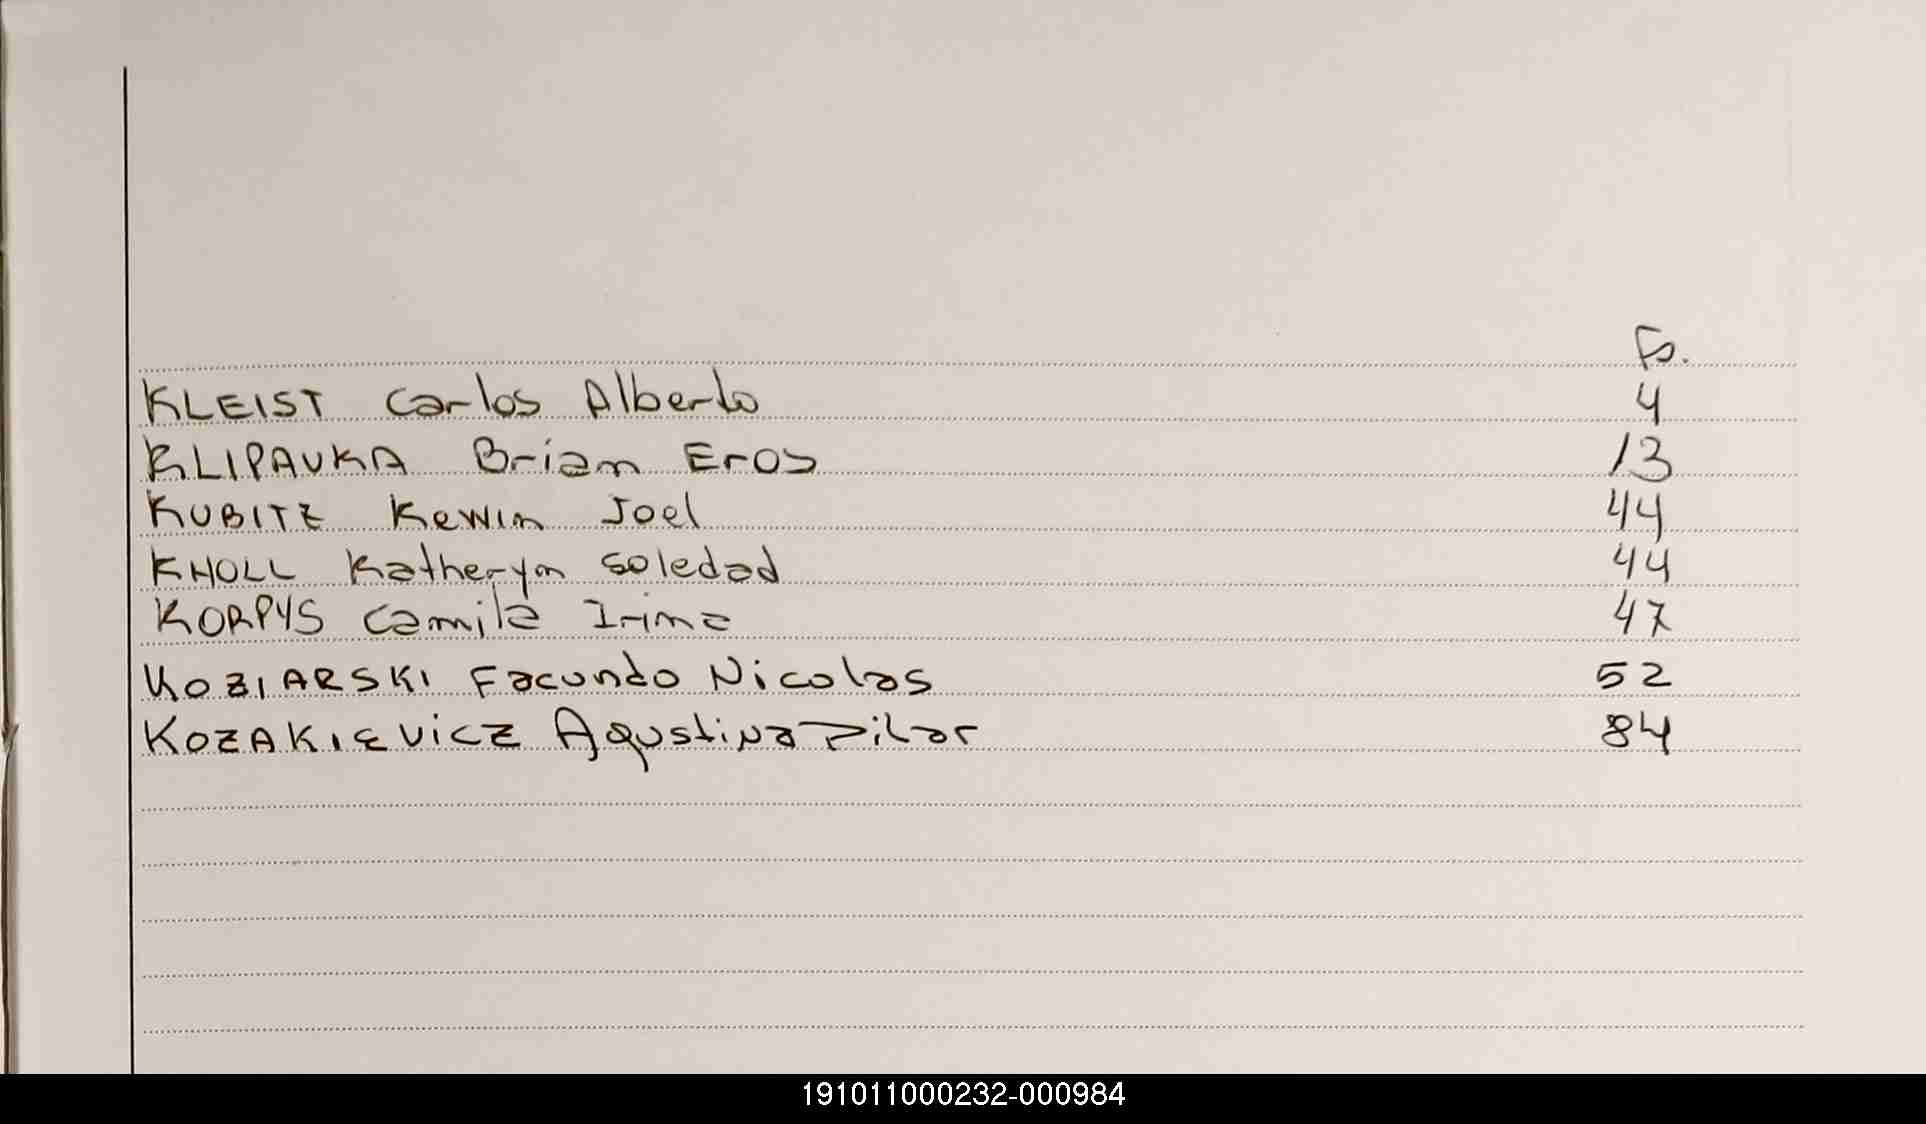 Fs.
KLEIST Carlos Alberto 4
KLIPAUKA Brian Eros 13
KUBITZ Kewin Joel 44
KHOLL Katheryn Soledad 44
KORPYS Camila Irina 47
KOZIARSKI Facundo Nicolas 52
KOZAKIEVICZ Agustina Pilar 84
191011000232-000984